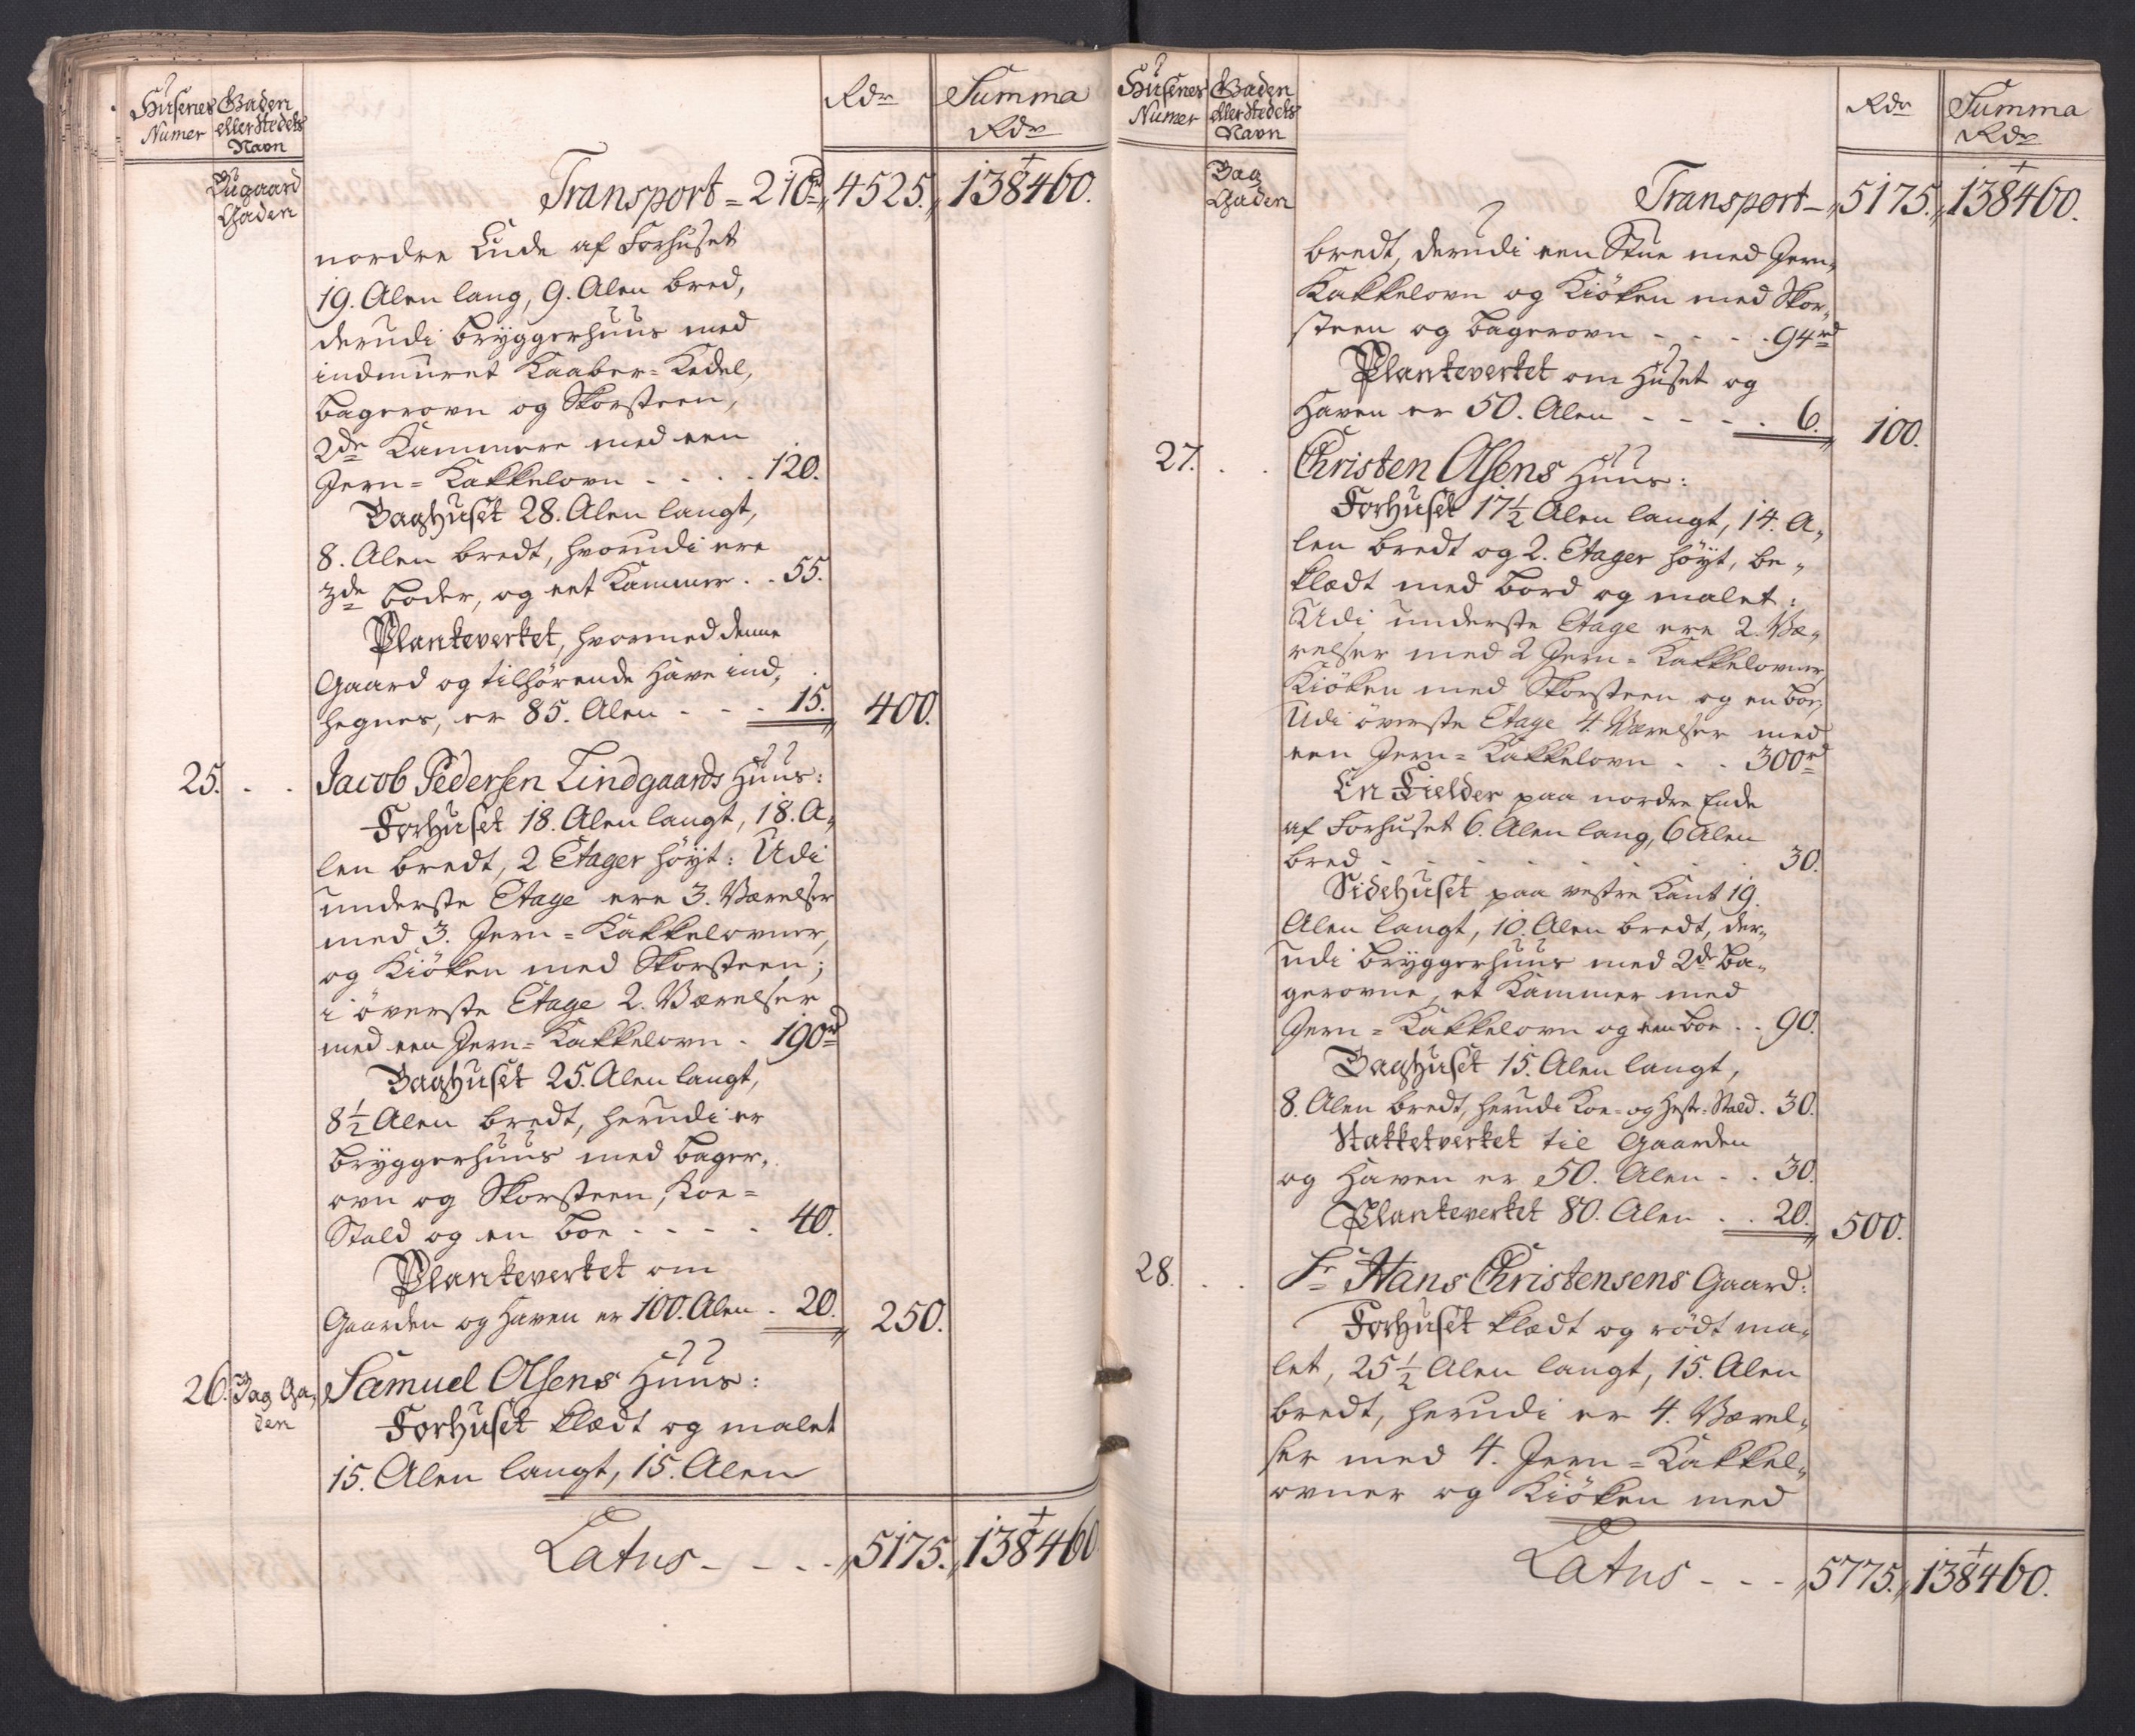 Husenes Numer
Gaden eller Stedets Navn
Rdr
Summa Rdr
Dugaard Gaden
Transport = 210rd 4525. 138460.
nordre Ende af Forhuset
19. Alen lang, 9. Alen bred,
derudi Bryggerhuus med
indmuret Kaaber-Kedel,
Bagerovn og Skorsteen,
2de Kammere med een
Jern-Kakkelovn - - - - 120.
Baghuset 28. Alen langt,
8. Alen bredt, hvorudi ere
3de Boder, og eet Kammer - - 55.
Plankeverket, hvormed denne
Gaard og tilhørende Have ind-
hegnes, er 85. Alen - - - 15. 400.
25. - - Jacob Pedersen Lindgaards Huus:
Forhuset 18. Alen langt, 18. A-
len bredt, 2 Etager høyt: Udi
underste Etage ere 3. Værelser
med 3. Jern-Kakkelovner,
og Kiöken med Skorsteen;
i överste Etage 2. Værelser
med een Jern-Kakkelovn - 190rd
Baghuset 25. Alen langt,
8 1/2 Alen bredt, herudi er
Bryggerhuus med Bager-
ovn og Skorsteen, Koe-
Stald og en Boe - - - - 40.
Plankeverket om
Gaarden og Haven er 100. Alen - 20. 250.
26. Bag Ga-
den
Samuel Olsens Huus:
Forhuset klædt og malet
15. Alen langt, 15. Alen
Latus - - - 5175. 138460
Husenes Numer
Gaden eller Stedets Navn
Rdr
Summa Rdr
Bag Gaden
Transport - 5175. 138460.
bredt, derudi een Stue med Jern-
Kakkelovn og Kiöken med Skor-
steen og Bagerovn - - - - 94rd
Plankeverket om Huset og
Haven er 50. Alen - - - - 6. 100.
27. - - Christen Olsens Huus:
Forhuset 17 1/2 Alen langt, 14. A-
len bredt og 2. Etager høyt, be-
klædt med Bord og malet:
Udi underste Etage ere 2. Væ-
relser med 2 Jern-Kakkelovner,
Kiöken med Skorsteen og en Boe,
Udi överste Etage 4. Værelser med
een Jern-Kakkelovn - - 300rd
En Fielder paa nordre Ende
af Forhuset 6. Alen lang, 6 Alen
bred - - - - - - - 30.
Sidehuset paa vestre Kant 19.
Alen langt, 10. Alen bredt, der-
udi Bryggerhuus med 2de Ba-
gerovne, et Kammer med
Jern-Kakkelovn og een Boe - - 90.
Baghuset 15. Alen langt,
8. Alen bredt, herudi Koe- og Heste-Stald - 30.
Stakketverket til Gaarden
og Haven er 50. Alen - - 30.
Plankeverket 80. Alen - - 20. 500.
28. - - Sr Hans Christensens Gaard:
Forhuset klædt og rödt ma-
let, 25 1/2 Alen langt, 15. Alen
bredt, herudi er 4. Værel-
ser med 4. Jern-Kakkel-
ovner og Kiöken med
Latus - - - 5775. 138460.